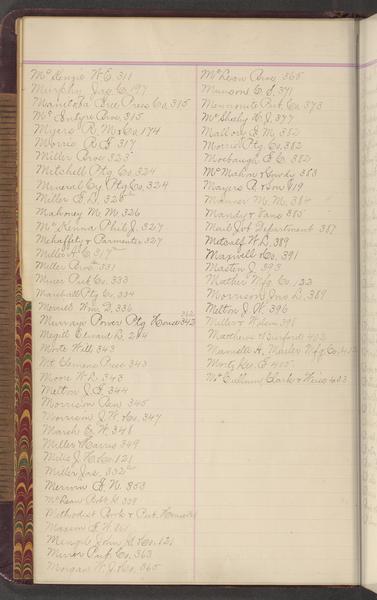 McKenzie W. E. 311
Murphy Jas. C. 197
Manitoba Free Press Co. 315
McIntyre Bros. 315
Myers R. M. & Co. 174
Morris 317
Miller Bros. 323
Mitchell Ptg Co. 324
Mineral Cy Ptg Co. 324
Miller E. D.
Mahoney M. M. 326
McKenna Phil J. 327
Mehaffety & Parmenter 327
Miller A. C. 317
Miller Bros. 331
Miner Pub. Co. 333
Marshall Ptg Co. 334
Merrill Wm D. 336
Murray Power Ptg House 342
Megill Edward D. 284
Morte Will 343
Mt. Clemens Press 343
Moore W. D. 343
Melton J. E. 344
Morrison Ben 345
Morrison J. W. & Co. 347
Marsh E. W. 348
Miller Harris 349
Mills J. H. & Co. 121
Miller Jas. 332
Mervin G. N. 353
McLean Robt. H. 359
Methodist Book & Pub. House
Maxim E. W.
Mengel John G. & Co. 121
Mirror Pub. Co. 363
Morgan W. J. & Co. 365
McLean Bros. 365
Munson C. S. 371
Mennonite Pub. Co. 373
McSheehy H. J. 377
Mallory E. M. 382
Morrill Ptg Co. 382
Morbaugh E. C. 382
McMahon & Grody 383
Mayers A. & Son 119
Manner M. M. 384
Mandey & Vano 385
Mail Job Department 387
Metcalf W. D. 389
Maxwell & Co. 391
Masten J. 393
Mather Mfg Co. 123
Morrison Jno. D. 389
Melton J. W. 396
Miller & Wilson 391
Matthews
Marnette H. Mailer Mfg Co.
Mortz Leo. E. 405
McCallum, Clark & Weig 403